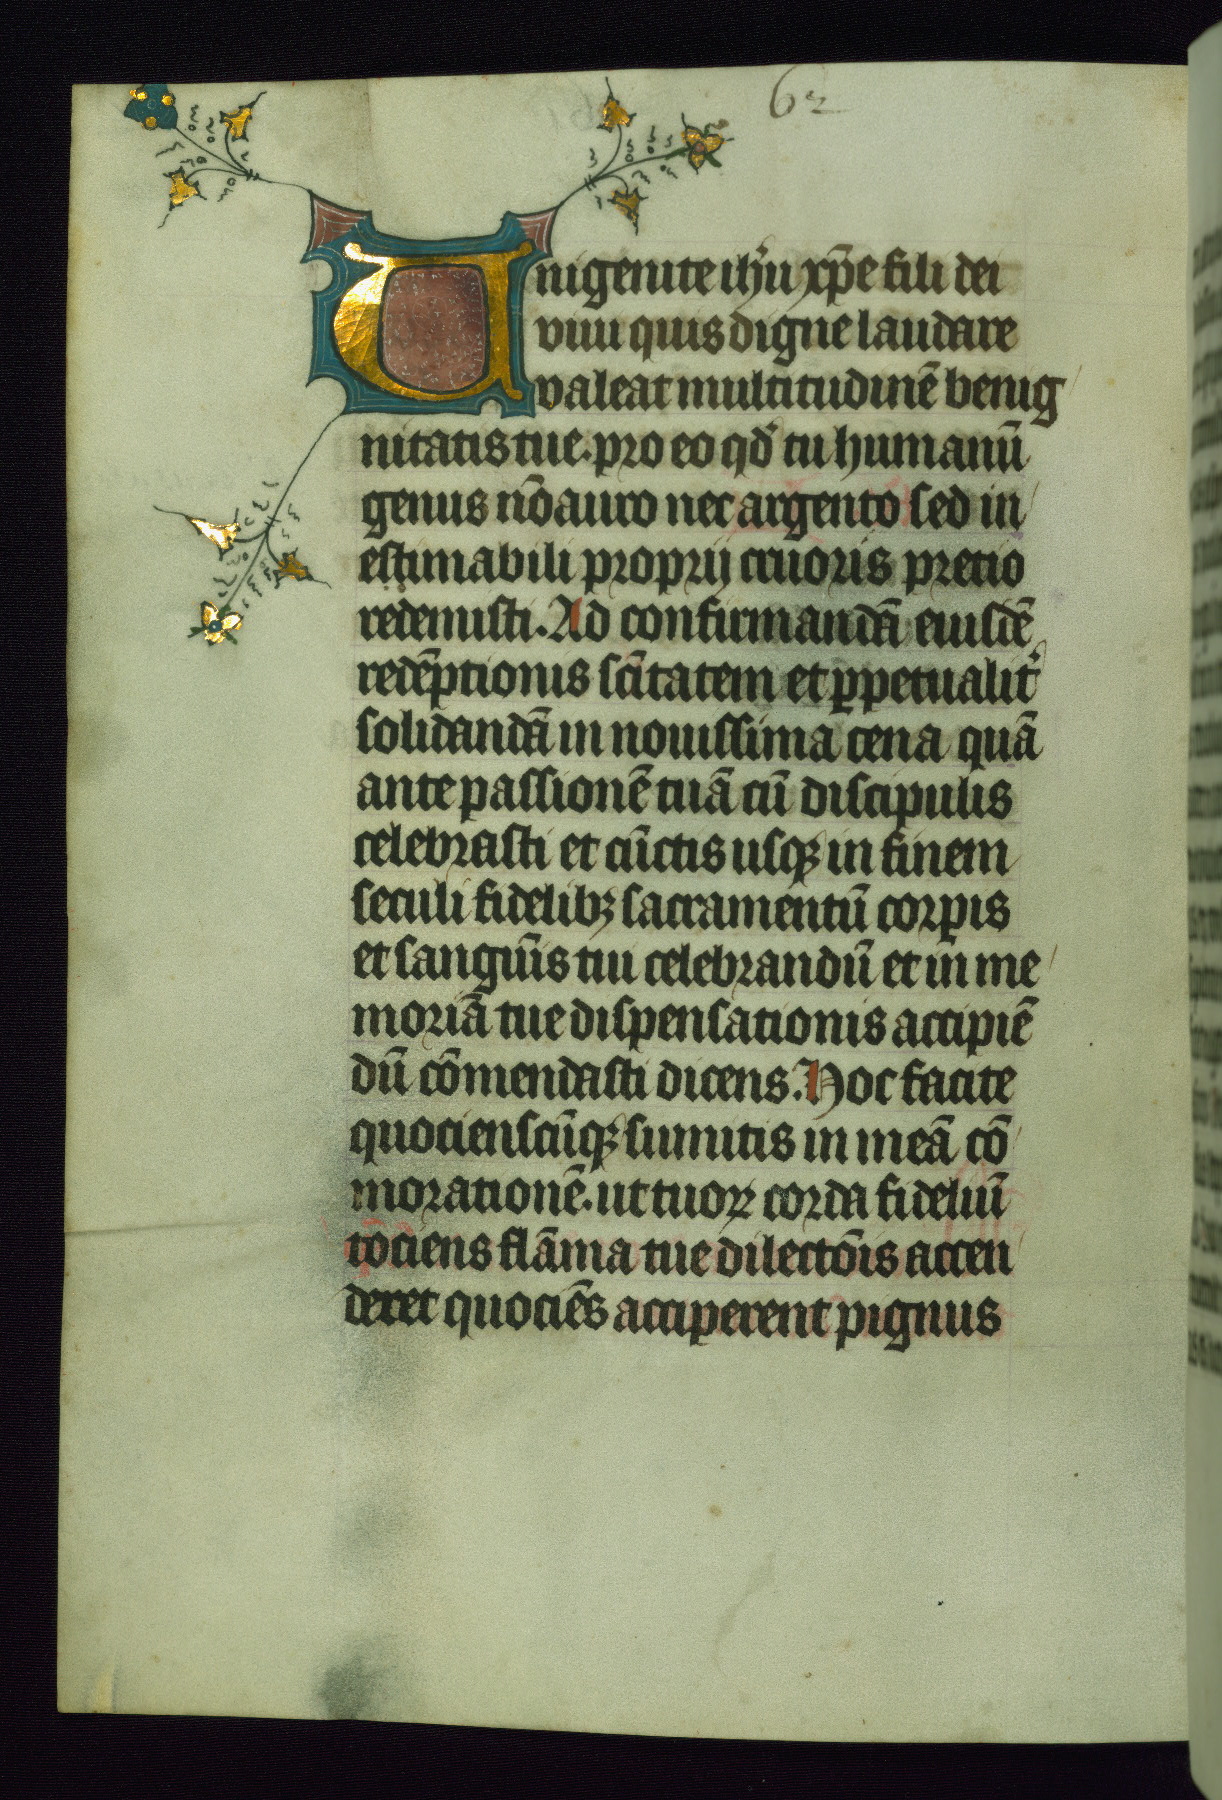 62
Unigenite ihũ xp̄e fili dei
viui quis digne laudare
valeat multitudinē benig
nitatis tue. pro eo qd̾ tu humanū
genus nō auro nec argento sed in
estimabili proprij cruoris precio
redemisti. Ad confirmandā eiusdē
redēptionis sc̄itatem et ꝑpetualit̾
solidandā in nouissima cena quā
ante passionē tuā cū discipulis
celebrasti et cūctis usqꝫ in finem
seculi fidelibꝫ sacramentū corꝑis
et sanguīs tui celebrandū et in me
moriā tue dispensationis accipiē
dū cōmendasti dicens. Hoc facite
quociensc̄ūqꝫ sumitis in meā cō
morationē. ut tuoꝝ corda fideliū
tociens flāma tue dilectōis accen
deret quociēs acciperent pignus